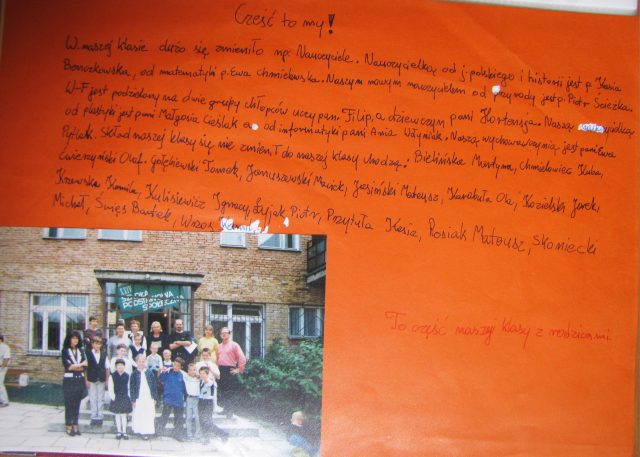 Cześć to my!
W naszej klasie dużo się zmieniło np. Nauczyciele. Nauczycielką od j. polskiego i historii jest p. Kasia
Bonozkowska, od matematyki p. Ewa Chmielewska. Naszym nowym nauczycielem od przyrody jest p. Piotr Ścieżka.
W-F jest podzielony na dwie grupy chłopców uczy pan Filip, a dziewczyn pani Hortensja. Naszą
od plastyki jest pani Małgosia Cieślak a od informatyki pani Ania Wtyniak. Naszą wychowawczynią jest pani Ewa
Pytlak. Skład naszej klasy się nie zmienił do naszej klasy chodzą: Bielińska Martyna, Chmielowiec Kuba,
Ćwierzyński Olaf, Gołębiewski Tomek, Januszewski Maciek, Jasiński Mateusz, Karabuła Ola, Kozielski Jarek,
Krzewska Kamila, Kulisiewicz Ignacy, Łyjak Piotr, Przytuła Kasia, Rosiak Mateusz, Słoniecki
Michał, Święs Bartek, Wzos
To część naszej klasy z rodzicami
SZKOŁA
PODSTAWOWA
SPOŁECZNA